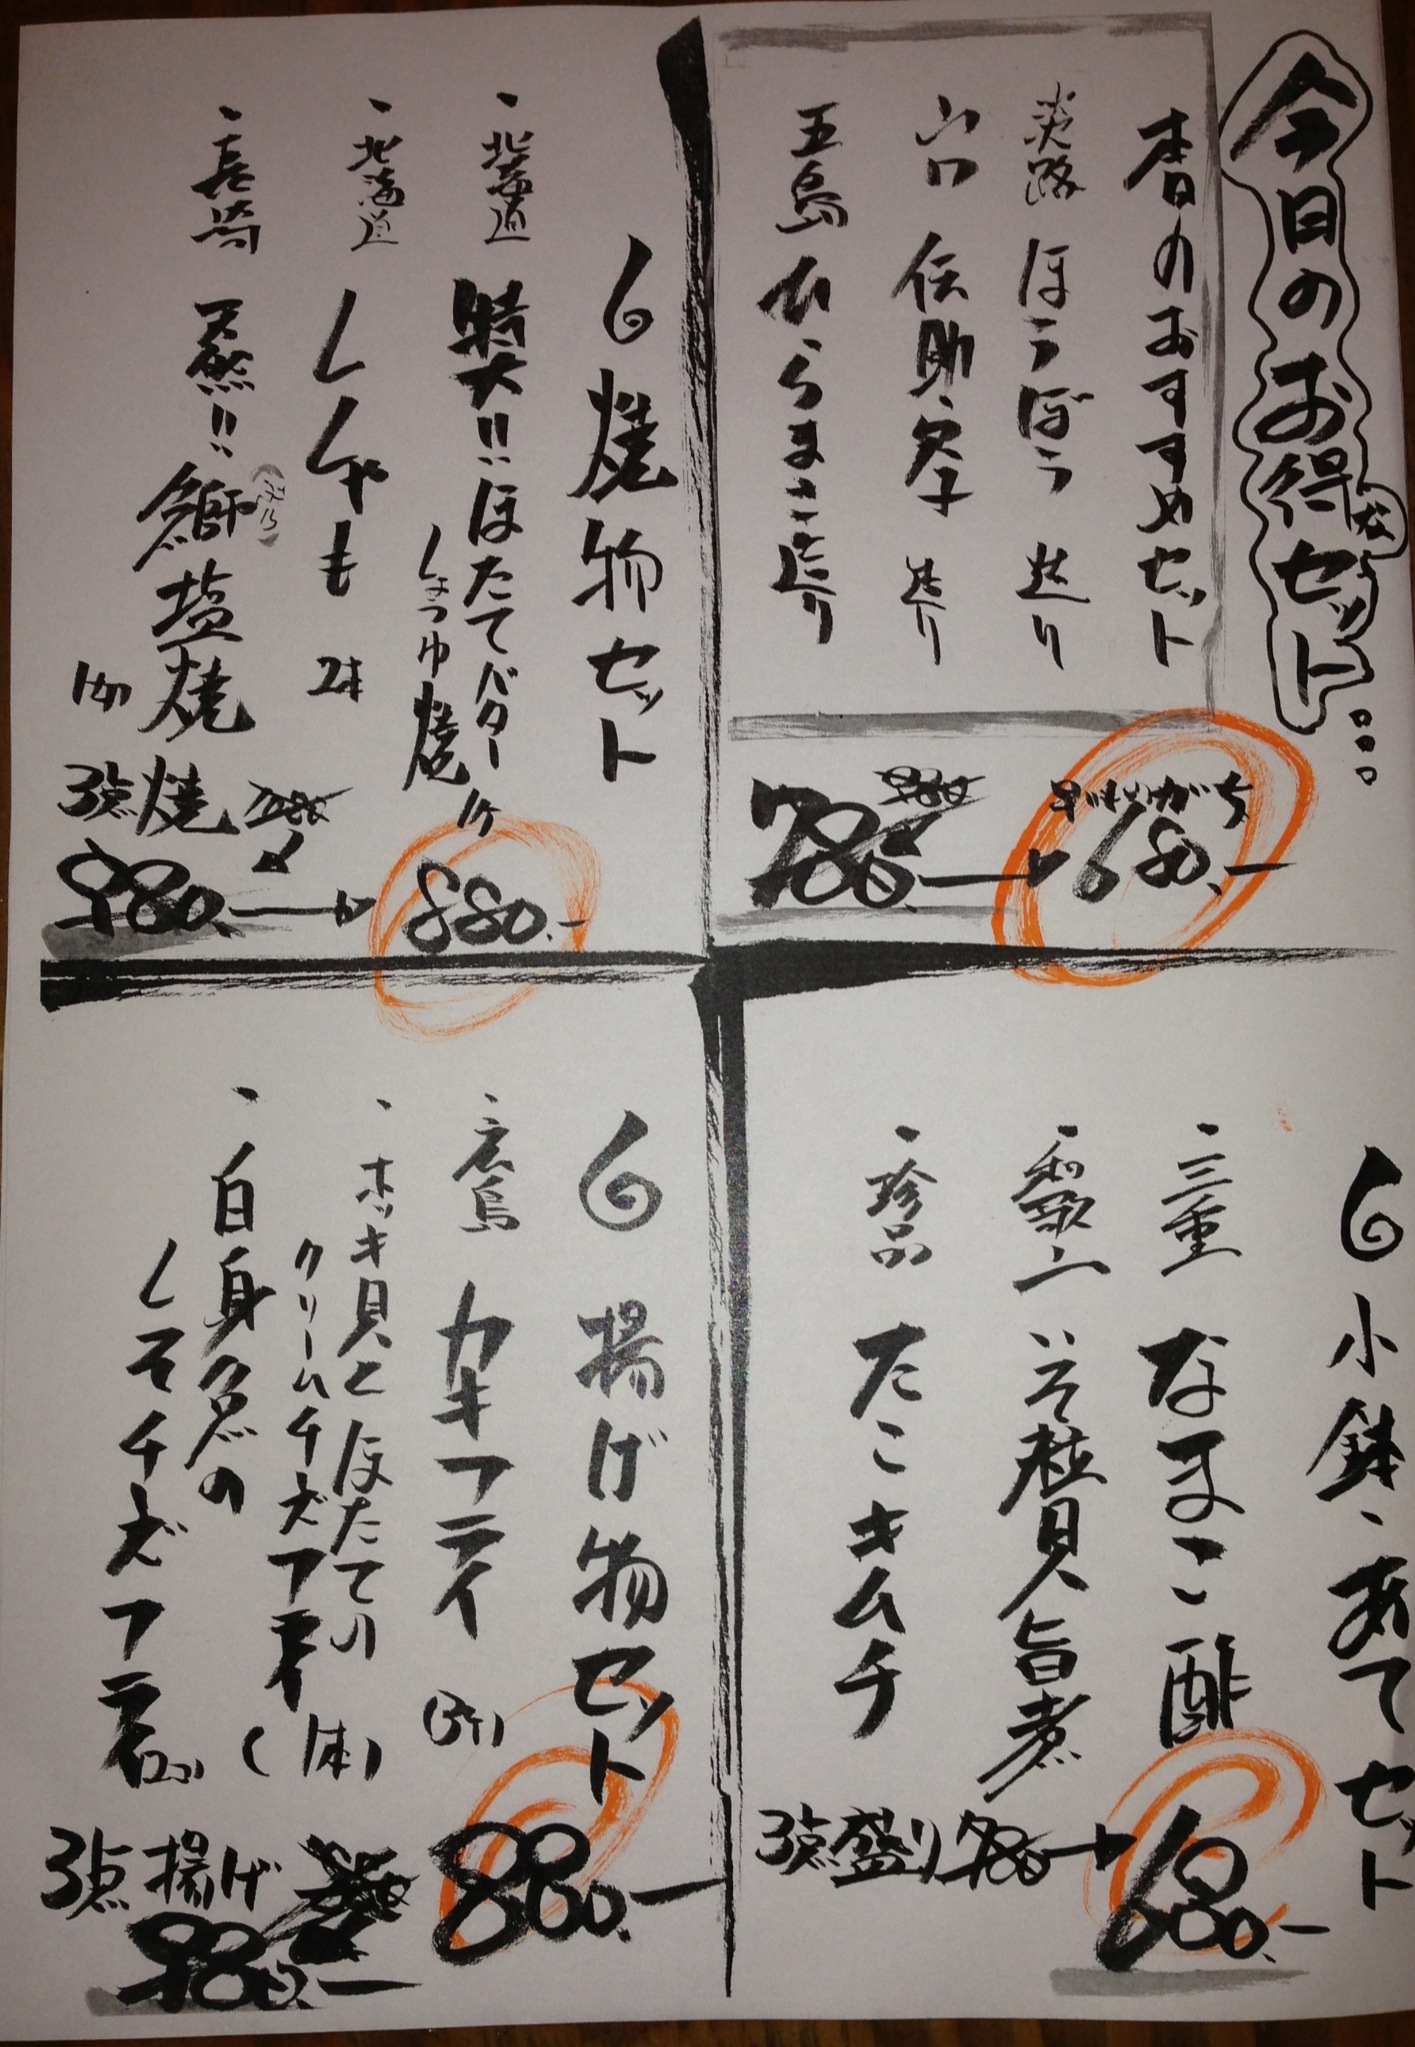 今日のお得なセット...
本日のおすすめセット
淡路 ほうぼう 造り
山口 伝助穴子 造り
五島 ひらまさ造り
980
780.→早いもんがち 680.-
焼物セット
・北海道 特大!!ほたてバター
しょうゆ焼 1ケ
・北海道 ししゃも 2本
・長崎 天然!!鰤(ぶり)塩焼 1切
3点焼 1080
980.→880.-
小鉢・あてセット
・三重 なまこ酢
・和歌山 いそ粒貝旨煮
・珍品 たこキムチ
3点盛り 780→680.-
揚げ物セット
・広島 カキフライ (3ケ)
・ホッキ貝とほたての
クリームチーズフライ (1本)
・白身魚の
しそチーズフライ
3点揚げ
980.- 880.-